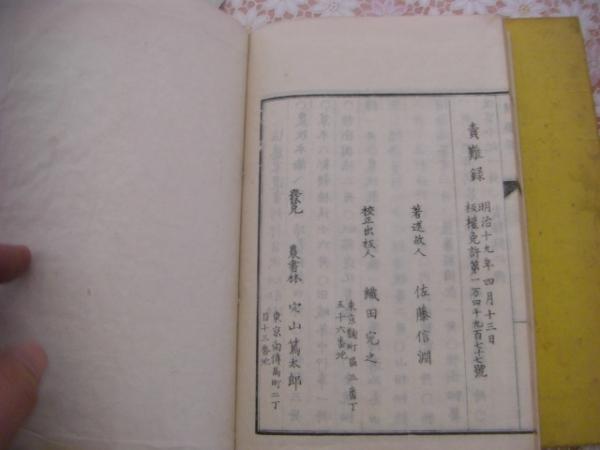 責難録
明治十九年四月十三日
板權免許第一万四千九百七十七號
著述故人 佐藤信淵
校正出板人 織田完之
東京麹町區三番丁
五十六番地
發兌 農書林 穴山篤太郎
東京南傳馬町二丁
目十三番地